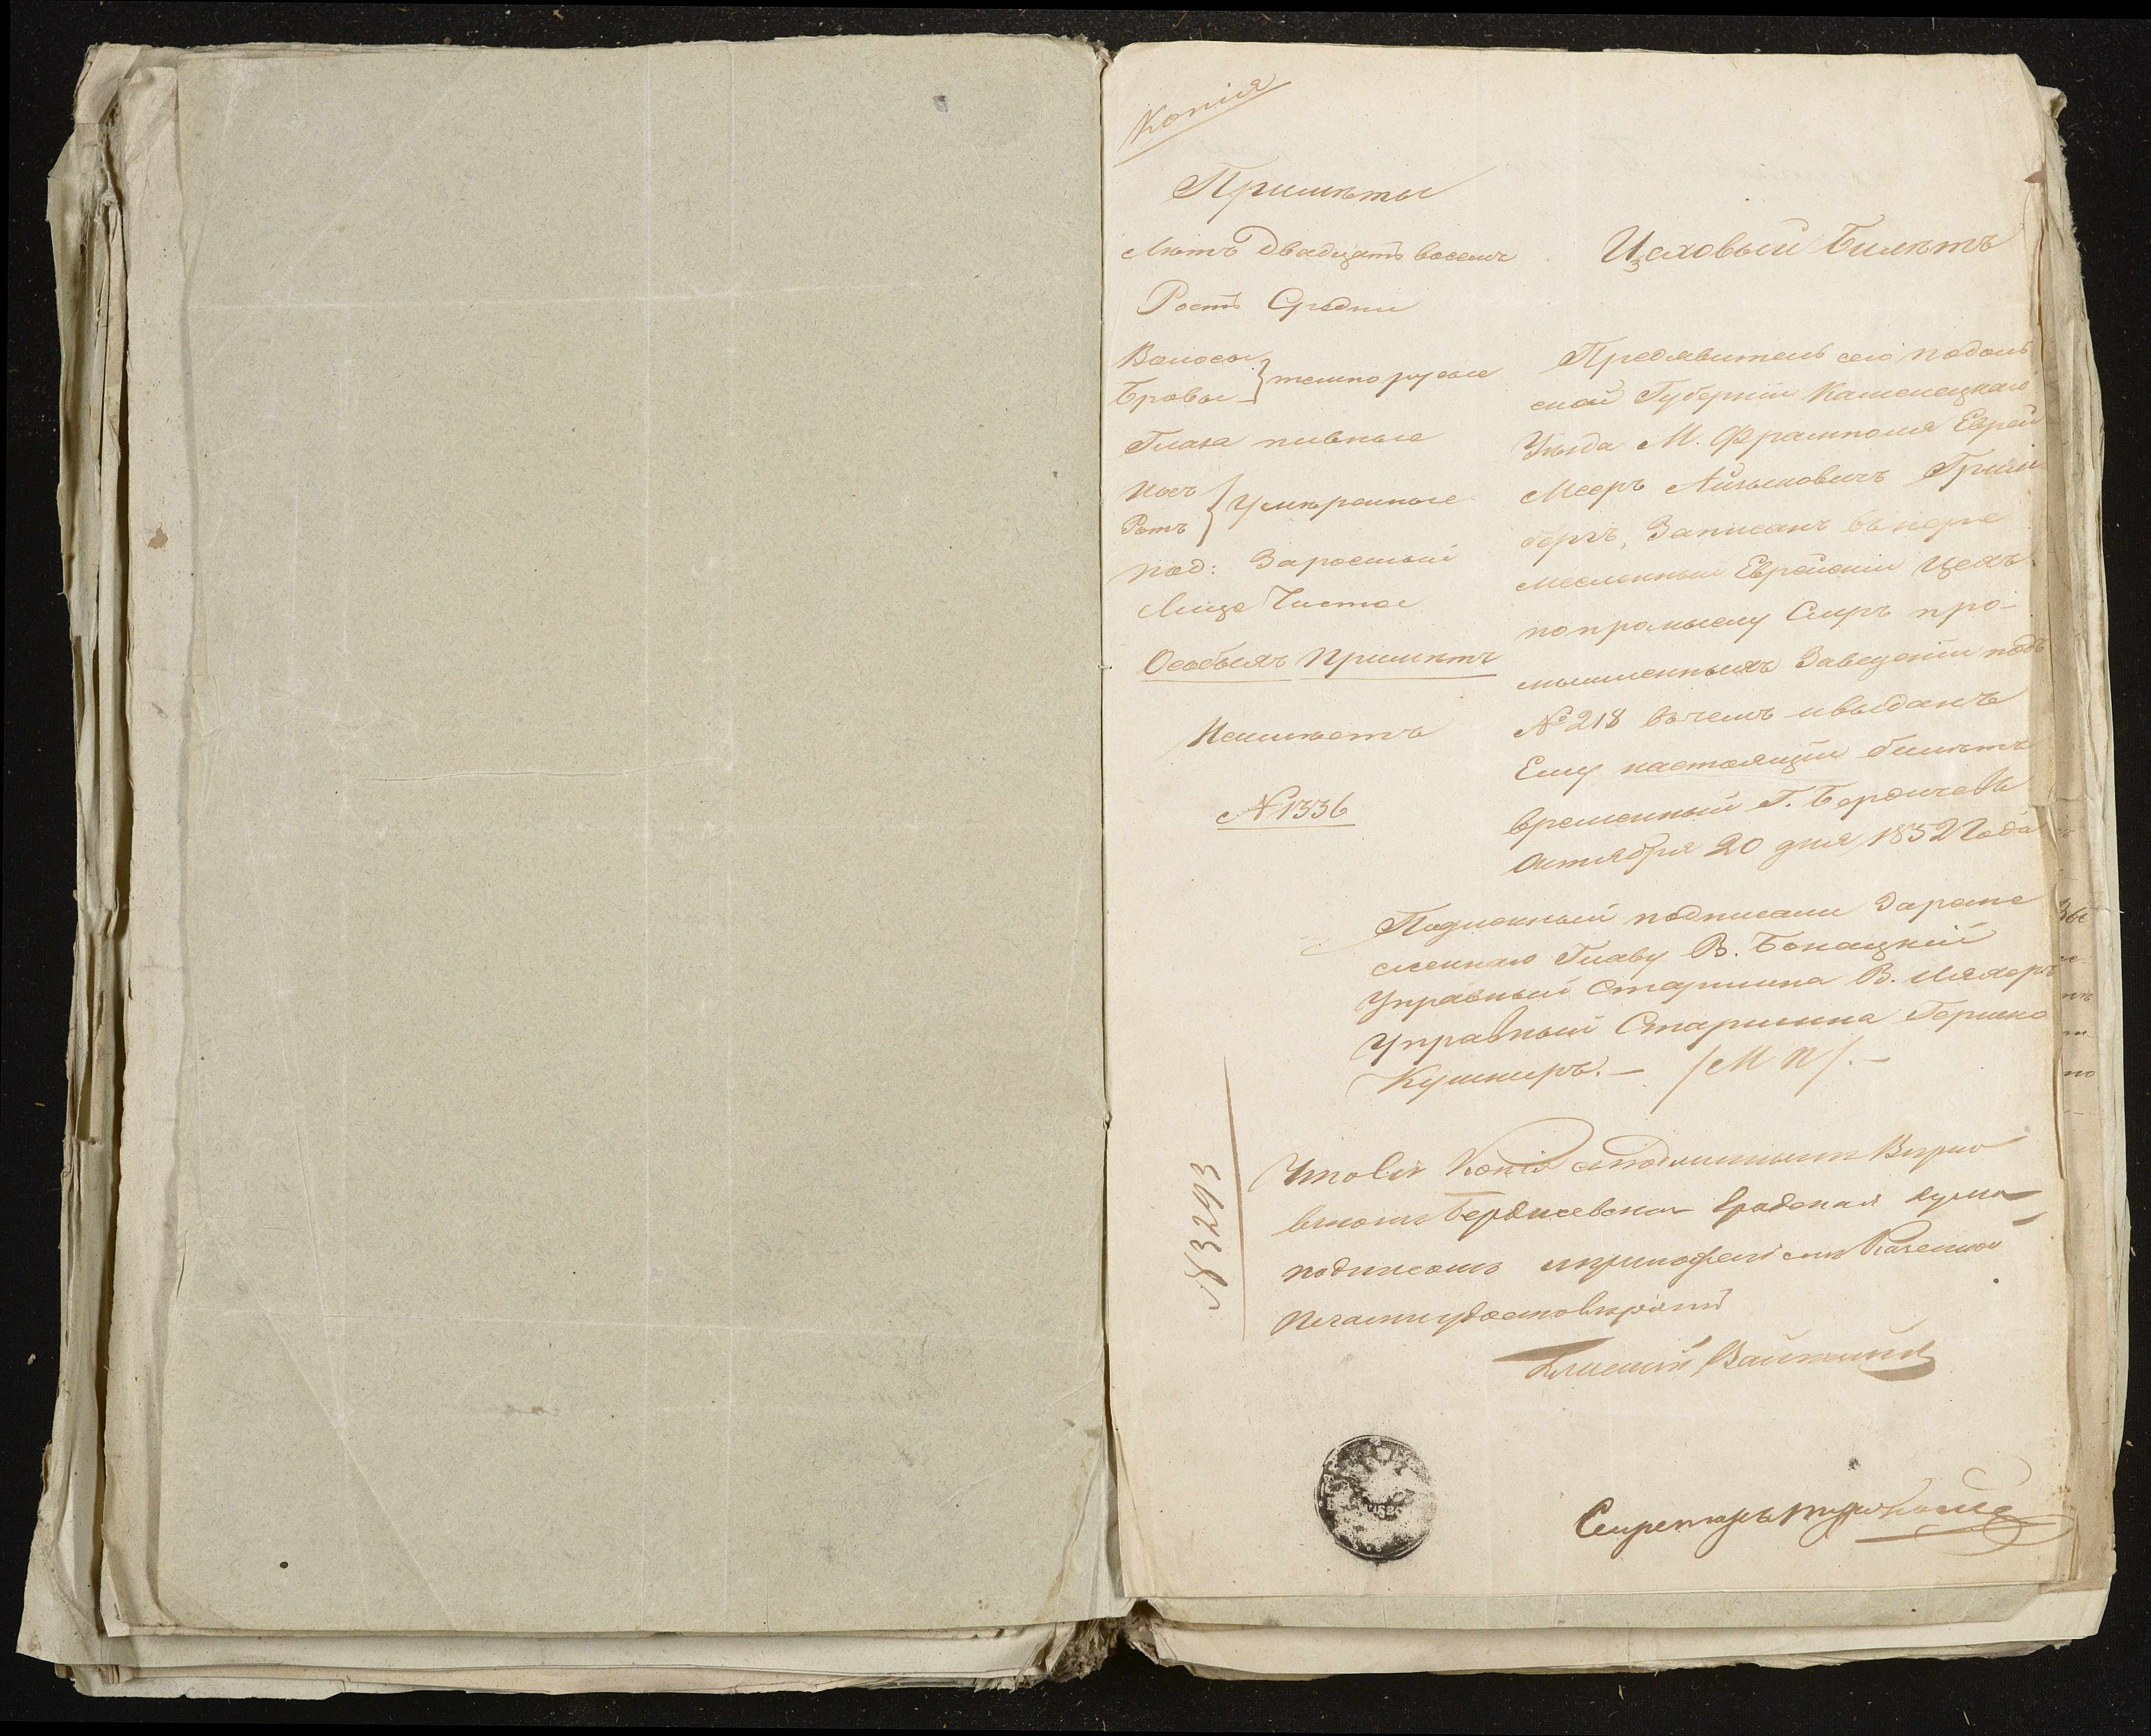 Копія
Примѣты
Лѣтъ Двадцать восемъ
Ростъ Средни
Волосы
Бровы } темнорусые
Глаза пивные
Носъ
Ротъ } Умѣренные
под: Заростый
Лице Чистое
Особыхъ Примѣтъ
Неимѣетъ
№ 1336
Цеховый Билѣтъ
Предявитель сего Подоль
ской Губерніи Каменецкаго
Уѣзда М. Фрамполя Еврей
Мееръ Айзыковичъ Грим
бергъ, Записанъ въ нере
месленный Еврейскій Цехъ
попромыслу Смръ про-
мышленныхъ Заведеніи подъ
№ 218 вчемъ ивыданъ
Ему настоящій билѣтъ
временный Г. Бердичевъ
Октября 20 дня 1852 Года
Подленный подписали Зареме
сленнаго Главу В. Бонацкій
Управный Старшина В.
Управный Старшина Гершко
Кушниръ. — /М П/. —
№ 3293
Что Сія Копія сподлиннымъ Вѣрно
втомъ Бердичевская Градская дума
подписомъ иприложеніемъ Казенной
Печати удостовѣряетъ
Секретарь